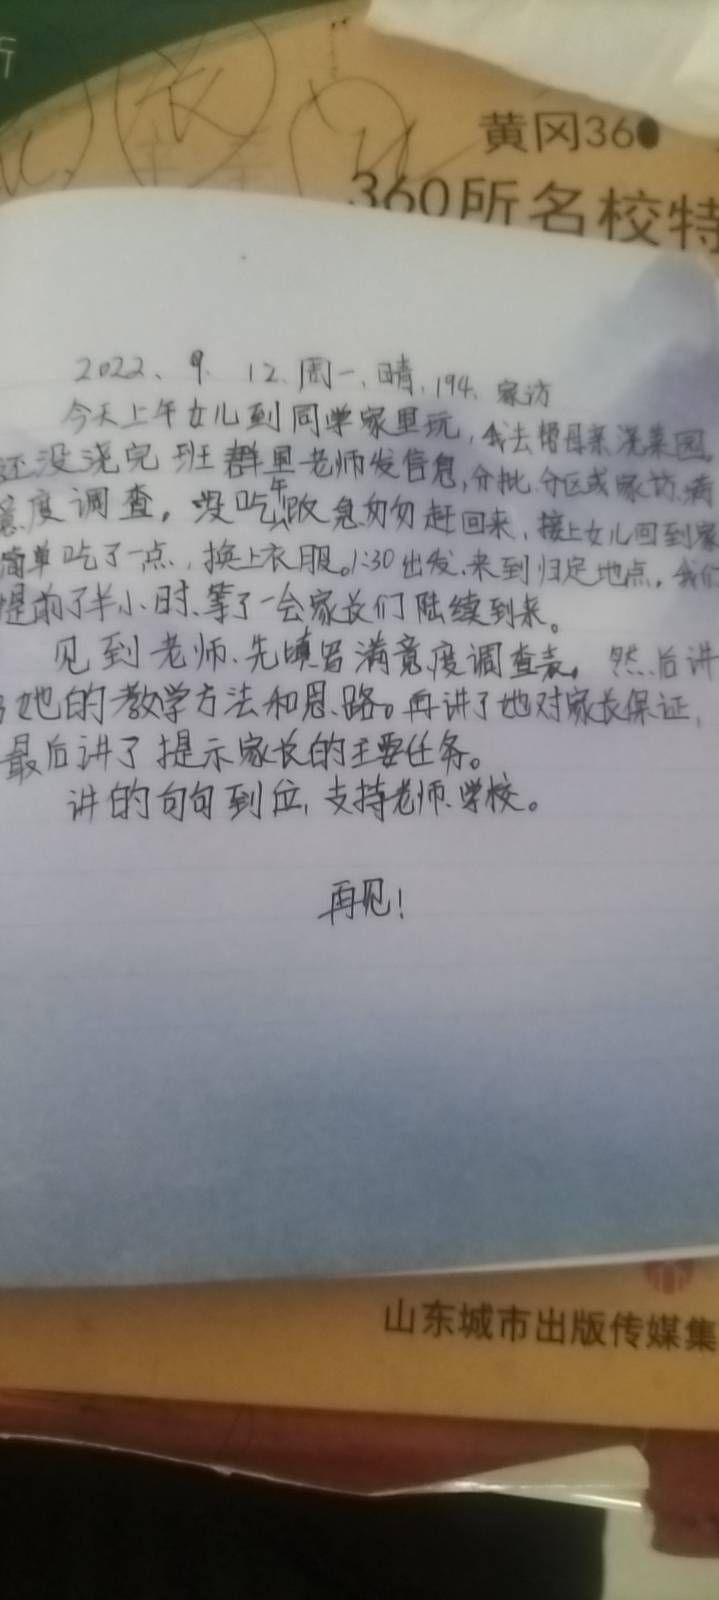 斤
黄冈360
360所名校特
2022、9、12、周一、晴，194、家访
今天上午女儿到同学家里玩，我去帮母亲浇菜园。
还没浇完班群里老师发信息，分批、分区或家访、满
意度调查，没吃午饭急匆匆赶回来，接上女儿回到家
简单吃了一点，换上衣服。1:30出发、来到归定地点，我们
提前了半小时、等了一会家长们陆续到来。
见到老师、先填写满意度调查表。然后讲
她的教学方法和思路。再讲了她对家长保证，
最后讲了提示家长的主要任务。
讲的句句到位，支持老师、学校。
再见！
山东城市出版传媒集